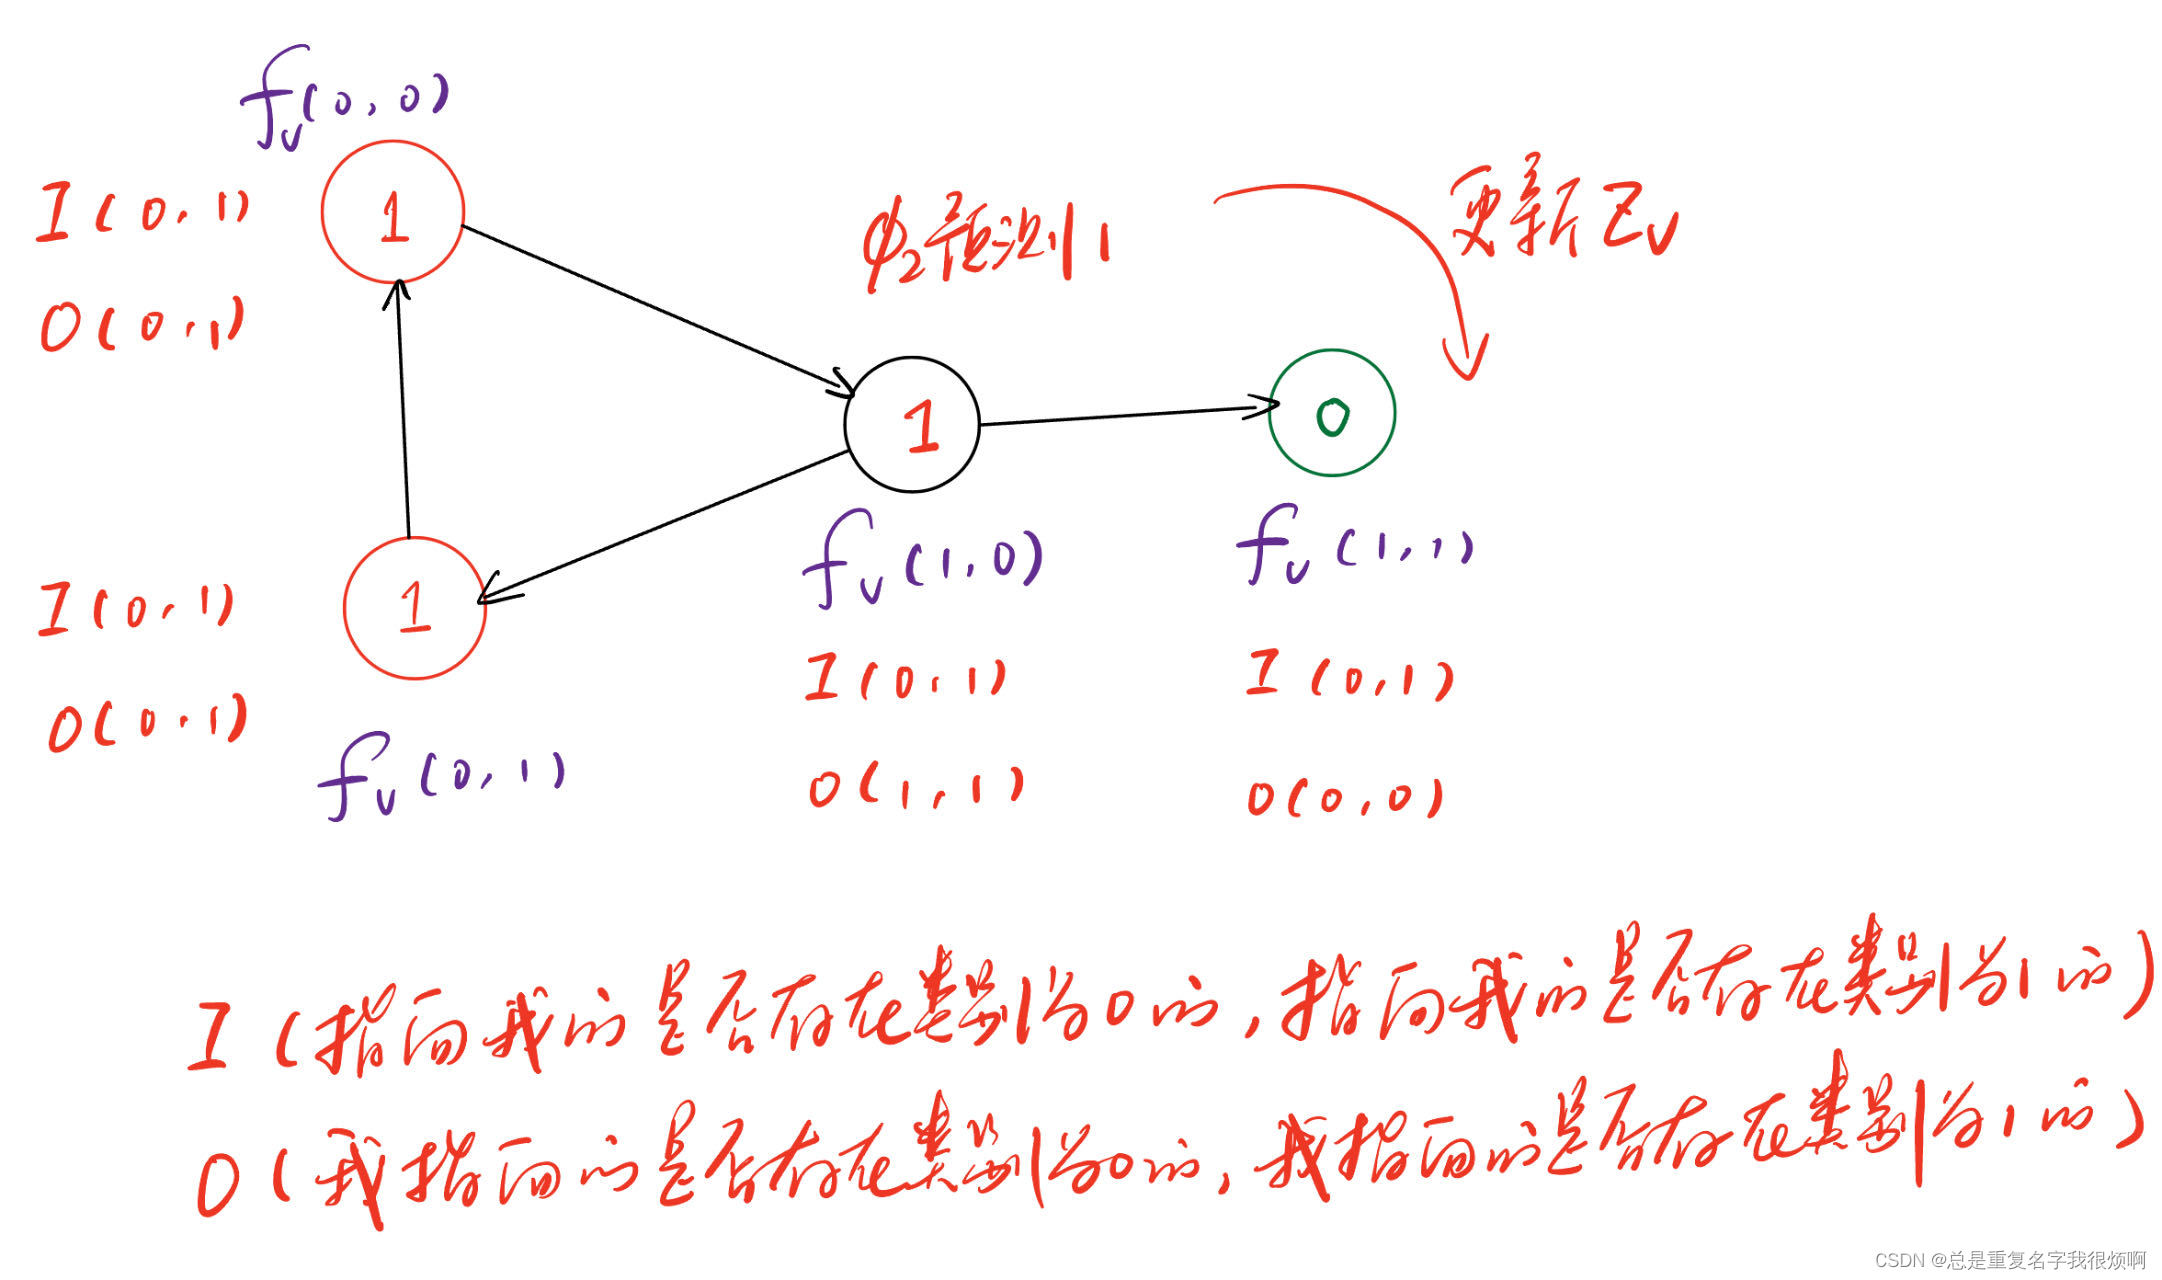 fᵥ(0,0)
I(0,1)
1
O(0,1)
ϕ₂预测1
更新Zᵥ
1
0
I(0,1)
1
O(0,1)
fᵥ(0,1)
fᵥ(1,0)
I(0,1)
O(1,1)
fᵥ(1,1)
I(0,1)
O(0,0)
I(指向我的是否存在类别为0的,指向我的是否存在类别为1的)
O(我指向的是否存在类别为0的,我指向的是否存在类别为1的)
CSDN @总是重复名字我很烦啊